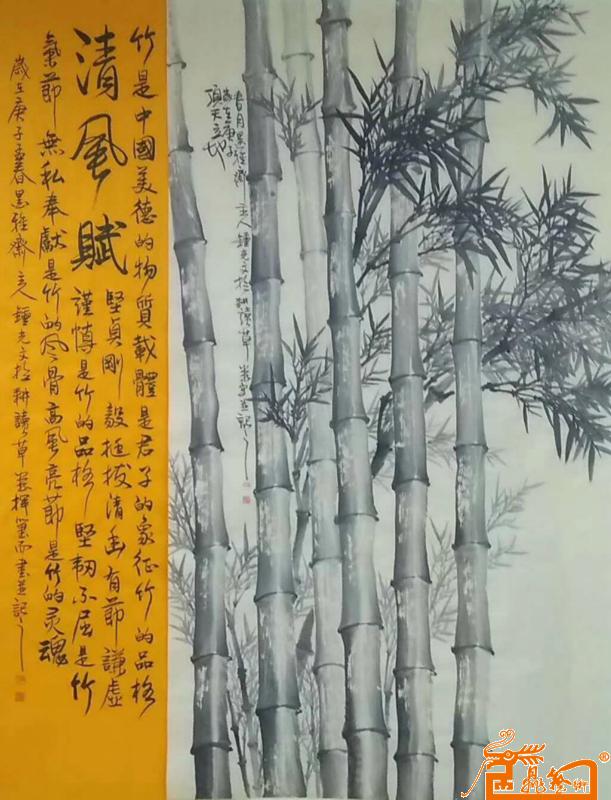 頂天立地
歲在庚子
春月墨雅齋主人鍾光文於耕讀草堂並記
竹是中國美德的物質載體是君子的象征竹的品格
清風賦
堅貞剛毅挺拔清幽有節謙虛
謹慎是竹的品格堅韌不屈是竹
氣節無私奉獻是竹的风骨高風亮節是竹的灵魂
歲在庚子春墨雅齋主人鍾光文於耕讀草堂揮筆而書並記